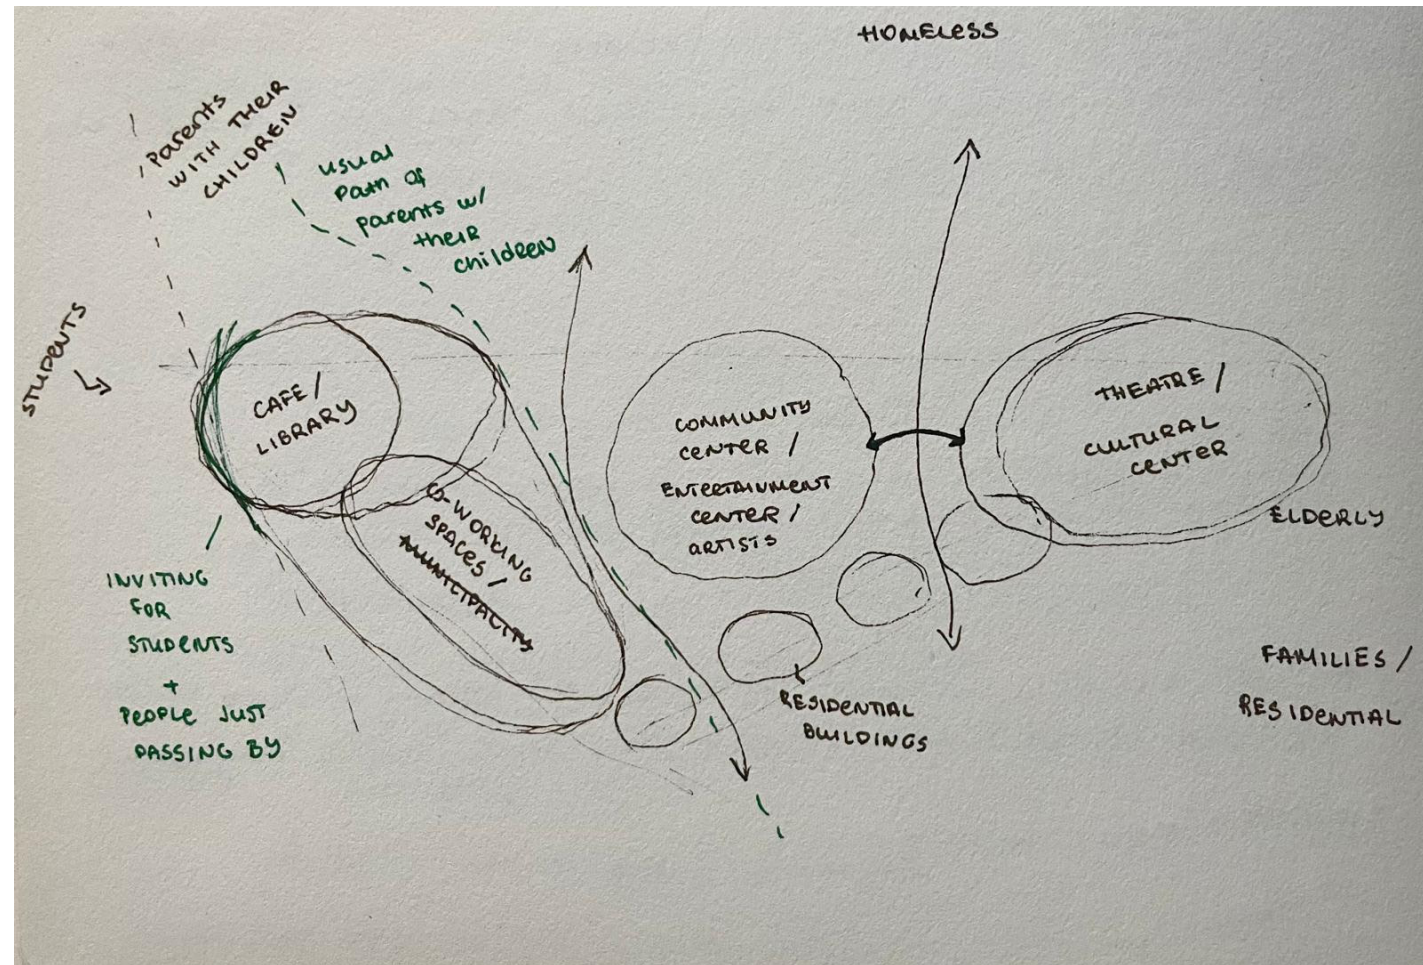 HOMELESS
Parents
WITH THEIR
CHILDREN
usual
path of
parents w/
their
children
STUDENTS
CAFE/
LIBRARY
CO-WORKING
SPACES/
MUNICIPALITY
COMMUNITY
CENTER /
ENTERTAINMENT
CENTER /
ARTISTS
THEATRE /
CULTURAL
CENTER
ELDERLY
INVITING
FOR
STUDENTS
+
PEOPLE JUST
PASSING BY
RESIDENTIAL
BUILDINGS
FAMILIES /
RESIDENTIAL